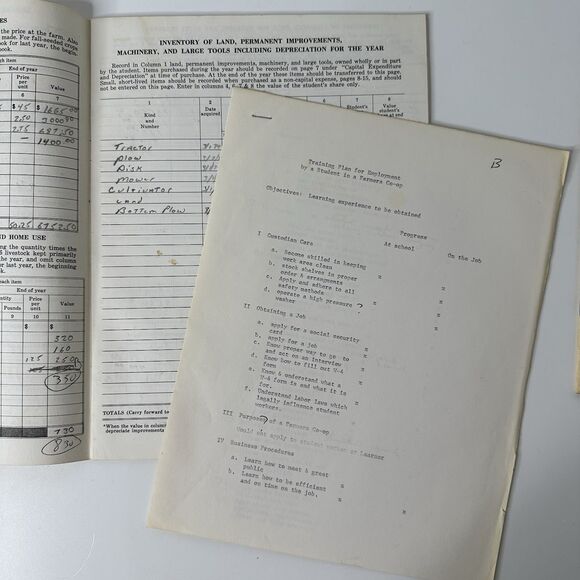 the price at the farm. Also
made. For fall-seeded crops
book for last year, the begin-
each item
End of year
Price
per
unit
Value
6
7
$ 45
$ 1665.00
2.50
2.75 687.50
1400.00
6752.50
AND HOME USE
ing the quantity times the
livestock kept primarily
, and omit column
for last year, the beginning
book.
each item
End of year
Pounds
Price
per
unit
Value
9
10
11
$
$
320
160
125
250
350
730
830
INVENTORY OF LAND, PERMANENT IMPROVEMENTS,
MACHINERY, AND LARGE TOOLS INCLUDING DEPRECIATION FOR THE YEAR
Record in Column 1 land, permanent improvements, machinery, and large tools, owned wholly or in part
by the student. Items purchased during the year should be recorded on page 7 under "Capital Expenditure
and Depreciation" at time of purchase. At the end of the year these should be transferred to this page.
Small, short-lived items should be recorded when purchased as a non-capital expense, pages 8-15, and should
not be entered on this page. Enter in columns 4, 6, 7 & 8 the value of the student's share only.
1
2
3
4
5
6
7
8
Kind
and
Number
Date
acquired
Student's
Value
student's
Tractor
Plow
Disk
Mower
Cultivator
Land
Bottom Plow
TOTALS (Carry forward to
*When the value in column
depreciate improvements
B
Training Plan for Employment
by a Student in a Farmers Co-op
Objectives: Learning experience to be obtained
Progress
At school
On the Job
I Custodian Care
a. Become skilled in keeping
work area clean
b. stock shelves in proper
order & arrangements
c. Apply and adhere to all
safety methods
d. operate a high pressure
washer
II Obtaining a Job
a. apply for a social security
card
b. apply for a job
c. Know proper way to go to
and act on an interview
d. Know how to fill out W-4
form
e. Know & understand what a
W-4 form is and what it is
for.
f. Understand Labor Laws which
legally influence student
workers.
III Purposes of a Farmers Co-op
Would not apply to student worker or Learner
IV Business Procedures
a. Learn how to meet & great
public
b. Learn how to be efficient
and on time on the job.